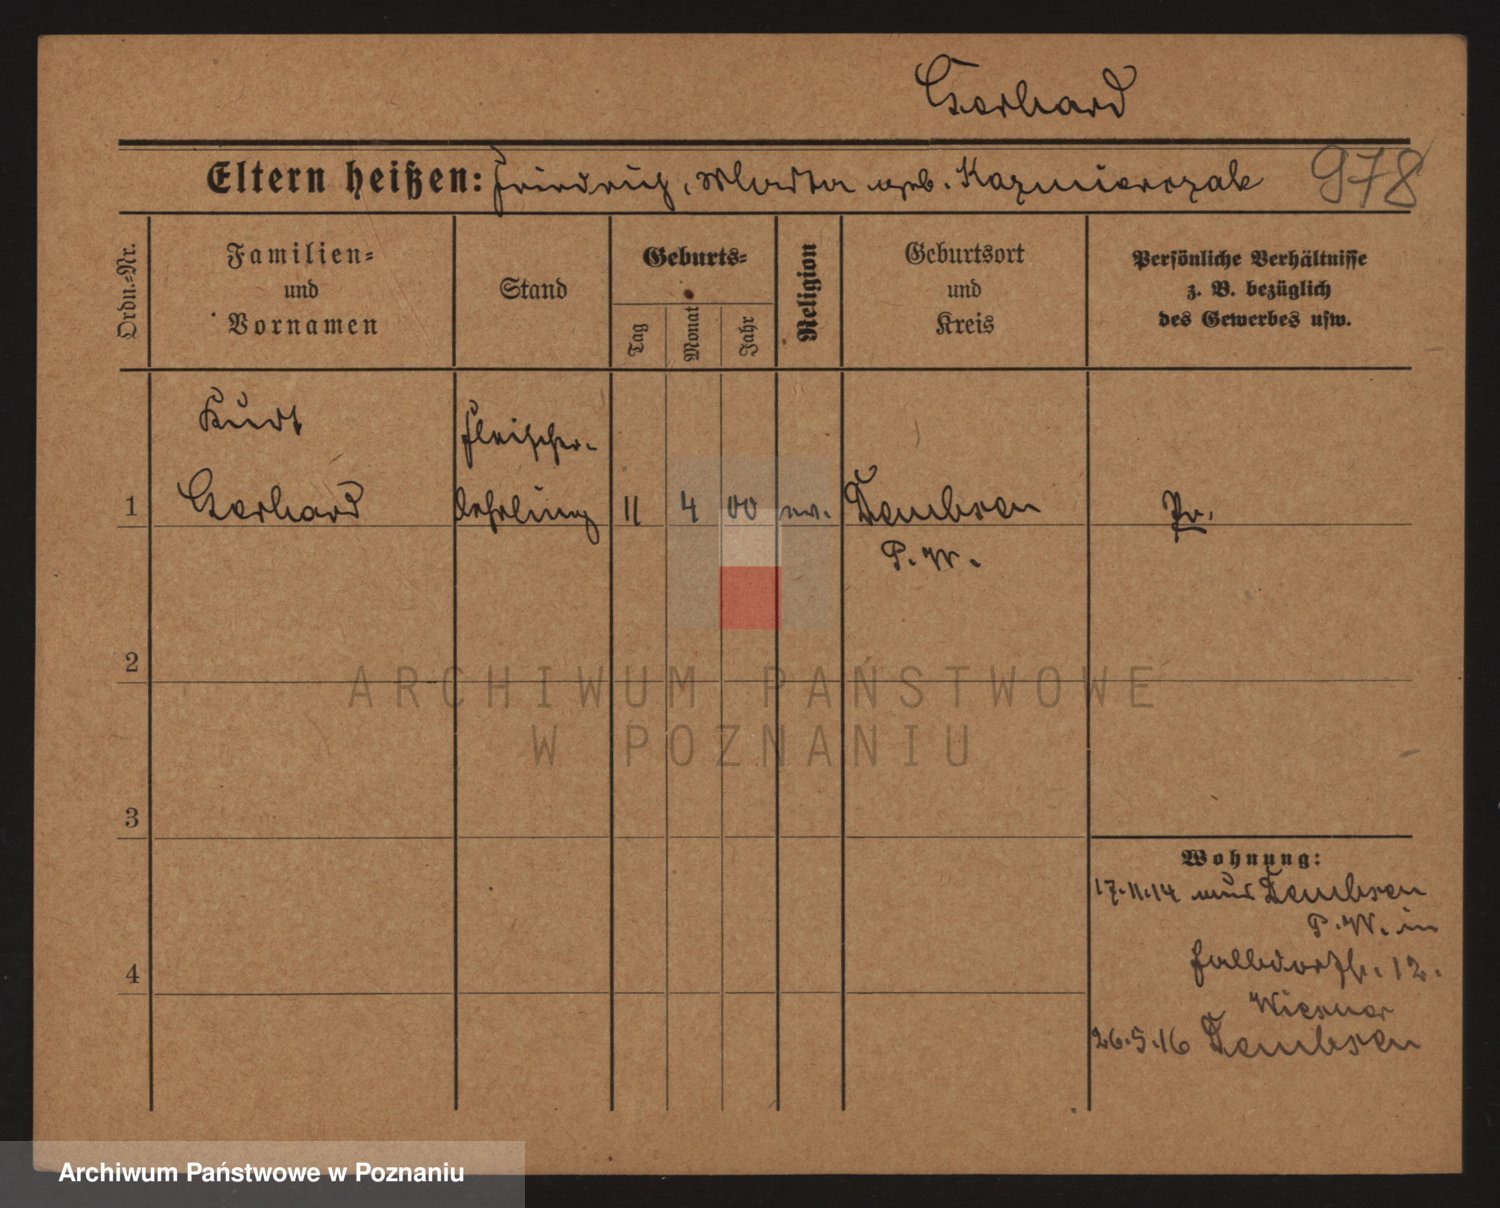 Gerhard
Eltern heißen: Friedrich, Martha geb. Kazmierczak 978
Ordn.-Nr.
Familien- und Vornamen
Stand
Geburts-
Tag
Monat
Jahr
Religion
Geburtsort und Kreis
Persönliche Verhältnisse
z. B. bezüglich
des Gewerbes usw.
Kurt
Fleischer-
1 Gerhard lehrling 11 4 00 ev. Dembsen Pr.
P. W.
2
3
4
Wohnung:
17.11.14 aus Dembsen
P. W. in
Halbdorfstr. 12.
Wiesner
26.5.16 Dembsen
ARCHIWUM PAŃSTWOWE
W POZNANIU
Archiwum Państwowe w Poznaniu